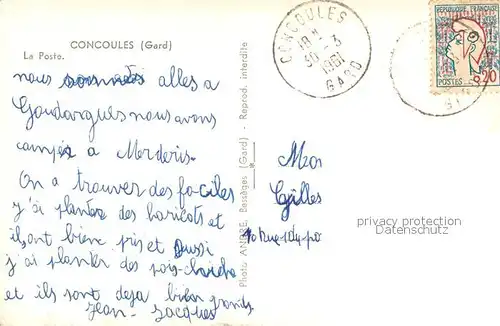 CONCOULES (Gard)
La Poste.
nous sommes alles a
Goudargues nous avons
campés a Merderis.
On a trouver des fociles
j'ai planter des haricots et
ils ont bien pris et aussi
j'ai planter des pois-chiche
et ils sont deja bien grands
Jean-Jacques
Photo ANDRÉ, Bessèges (Gard) - Reprod. interdite
CONCOULES
18 H
30 - 3
1961
GARD
REPUBLIQUE FRANÇAISE
POSTES
0,20
61
Gilles
privacy protection
Datenschutz